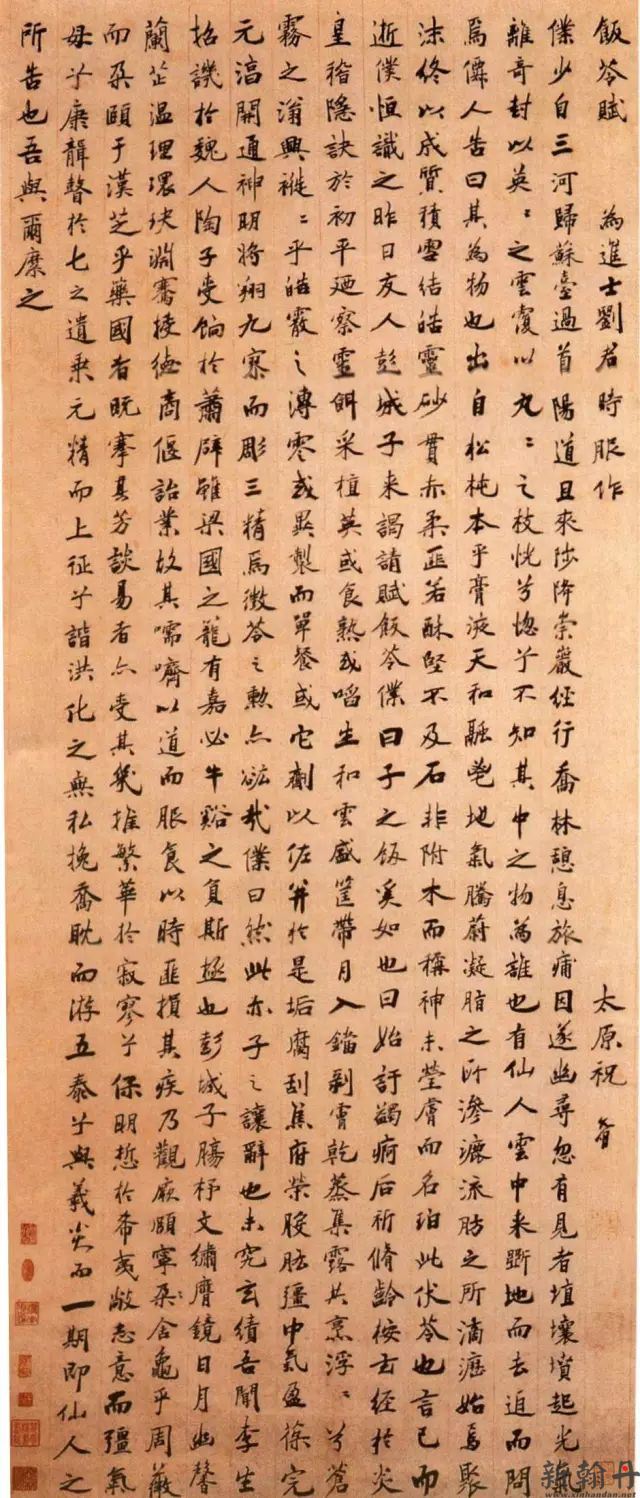 飯苓賦 為進士劉君時服作 太原祝
僕少自三河歸蘇臺過首陽道且來陟降崇巖經行喬林憩息旅痡因遂幽尋忽有見者埴壤墳起光氣
離奇封以英〻之雲覆以丸〻之枝恍兮惚兮不知其中之物為誰也有仙人雲中來斲地而去追而問
焉僊人告曰其為物也出自松杶本乎膏液天和融鬯地氣騰蔚凝脂之所滲漉流肪之所滴瀝始焉聚
沫終以成質積雪結皓靈砂貫赤柔匪若酥堅不及石非附木而稱神未瑩膚而名珀此伏苓也言已而
逝僕恒識之昨日友人彭城子來謁請賦飯苓僕曰子之飯奚如也曰始訂蠲痾后祈脩齡桉玄經於炎
皇稽隱訣於初平廼察靈餌采植英或食熟或啗生和雲盛筐帶月入鐺剝膚乾蒸集露共烹浮〻兮蒼
霧之滃興褷〻乎皓霰之漙零或異製而單餐或它劑以佐并於是垢腐刮焦府榮股肱彊中氣盈葆完
元滈開通神明將翔九寮而彫三精焉微苓之勲亦竑哉僕曰然此亦子之讓辭也未究玄績吾聞李生
招譏於魏人陶子受餉於蕭辟雖梁國之寵有嘉必牛谿之負斯極也彭城子腸杼文繡膺鏡日月幽馨
蘭芷温理環玦淵騫授德商偃詒業故其嚅嚌以道而服食以時匪損其疾乃觀厥頤寧朶舍龜乎周薇
而朶頤于漢芝乎藥國者既搴其芳談易者亦受其幾摧繁華於寂寥兮保明悊於希夷敝志意而彊氣
母兮廉韻聲於七之遺乘元精而上征兮諧洪化之無私挽喬耽而游五泰兮與羲炎而一期即仙人之
所告也吾與爾麋之
新翰丹
www.xinhandan.net